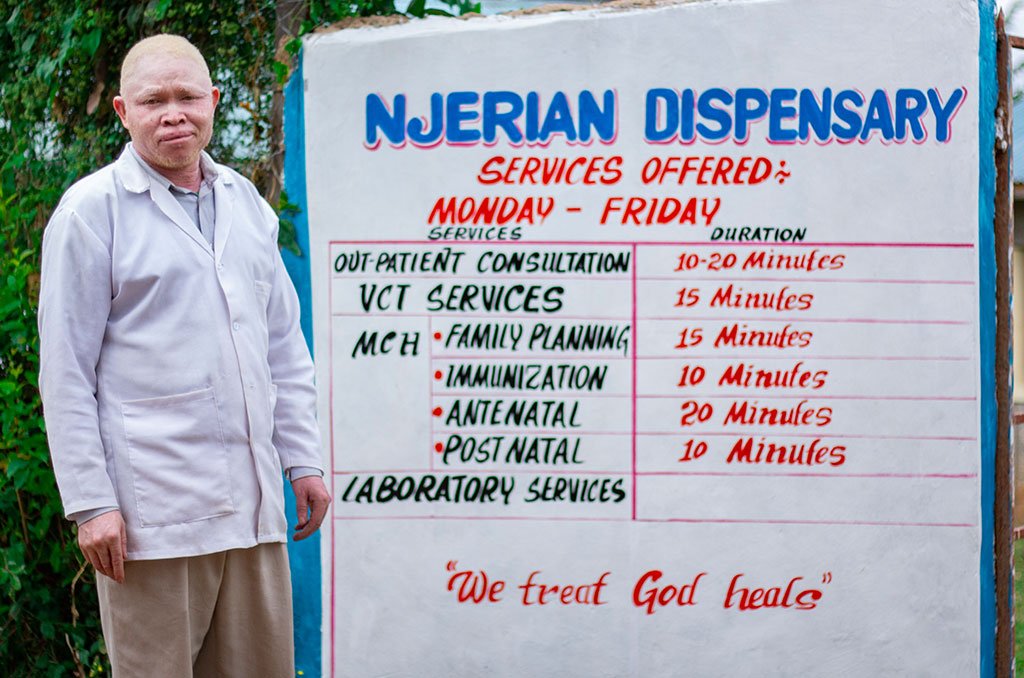 NJERIAN DISPENSARY
SERVICES OFFERED:-
MONDAY - FRIDAY
SERVICES DURATION
OUT-PATIENT CONSULTATION 10-20 Minutes
VCT SERVICES 15 Minutes
MCH • FAMILY PLANNING 15 Minutes
• IMMUNIZATION 10 Minutes
• ANTENATAL 20 Minutes
• POSTNATAL 10 Minutes
LABORATORY SERVICES
"We treat God heals"